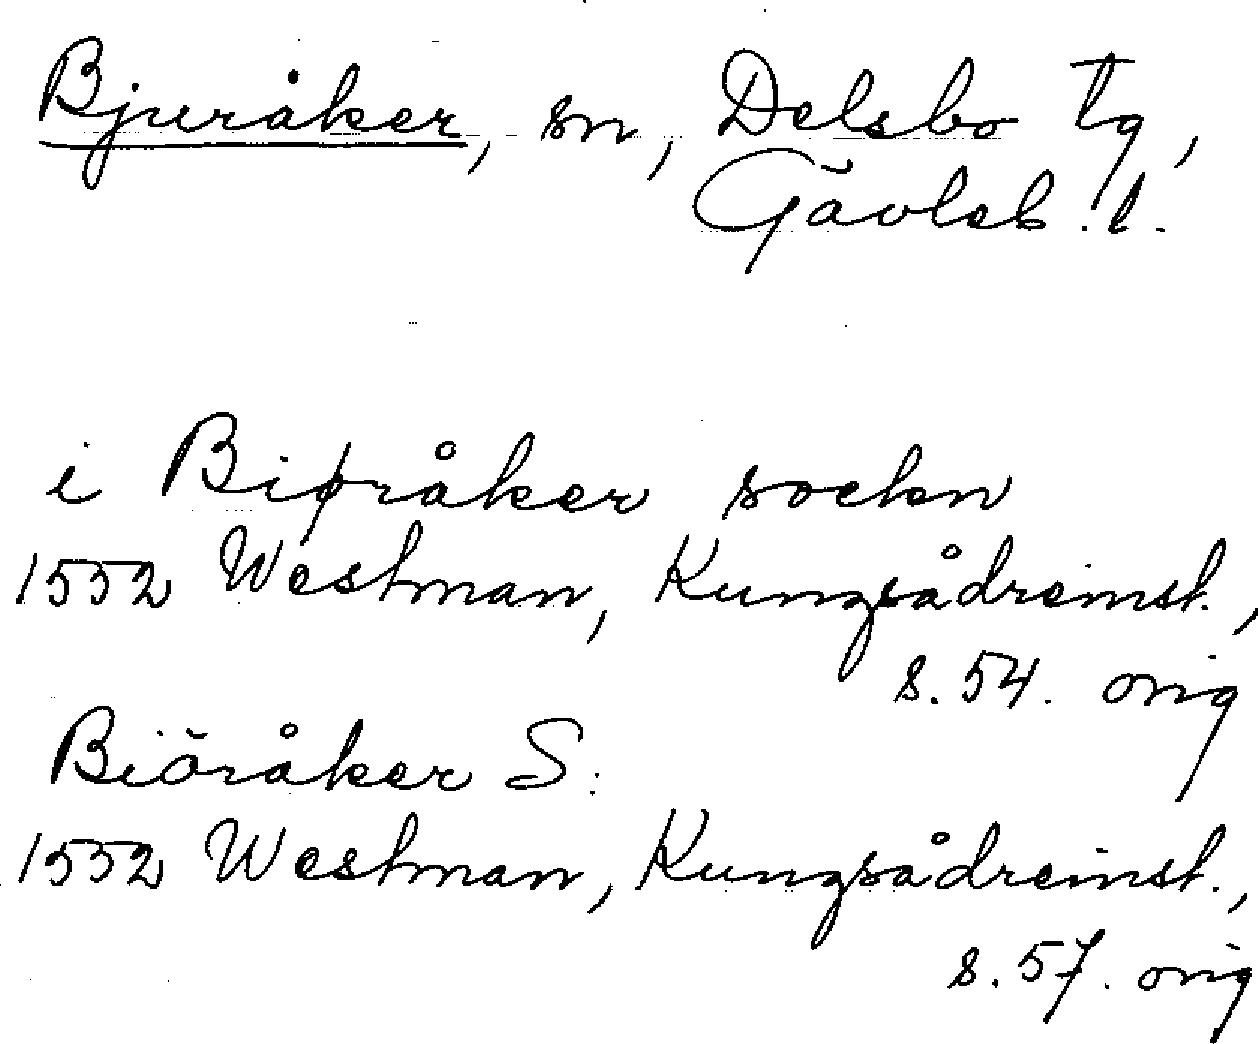 Bjuråker, sn, Delsbo tg,
Gävleb. l.
i Biøråker sockn
1552 Westman, Kungsådreinst.,
s. 54. orig
Biöråker S:
1552 Westman, Kungsådreinst.,
s. 57. orig